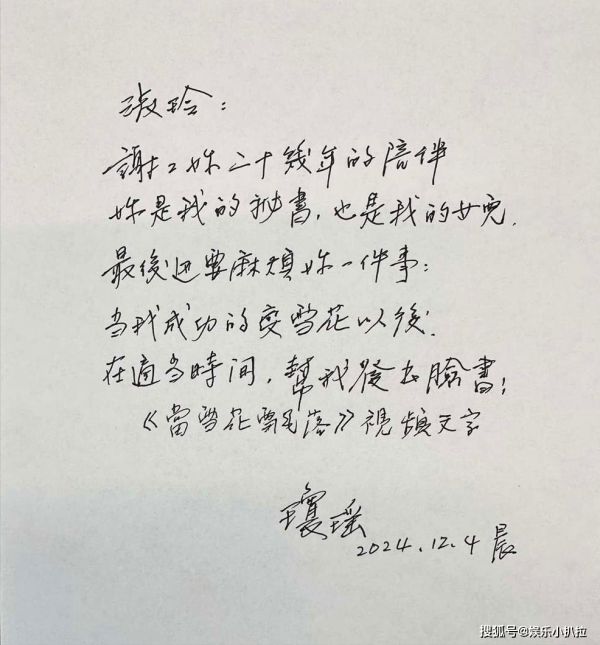 淑玲：
謝謝妳二十幾年的陪伴
妳是我的秘書，也是我的女兒.
最後还要麻煩妳一件事：
当我成功的变雪花以後.
在適当時间，幫我發去臉書；
《當雪花飄落》視頻文字
瓊瑶
2024.12.4 晨
搜狐号@娱乐小扒拉